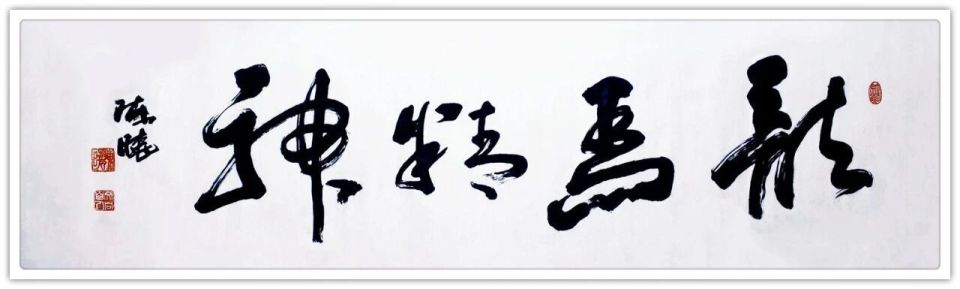 龍馬精神
陈曉